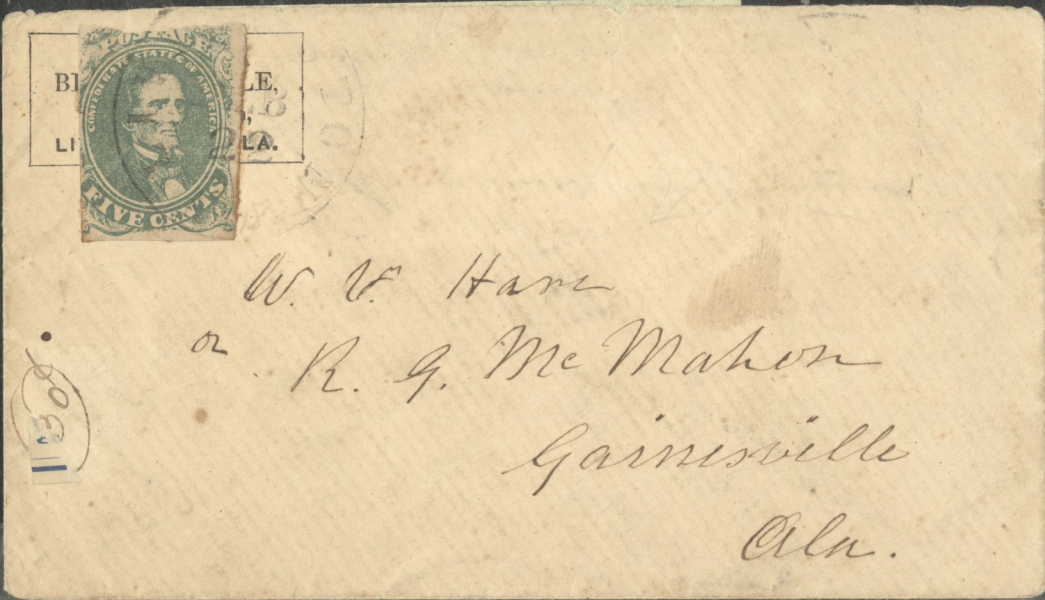 POSTAGE
CONFEDERATE STATES OF AMERICA
FIVE CENTS
BL LE,
LI LA.
W. V. Hare
or
R. G. McMahon
Gainesville
Ala.
30